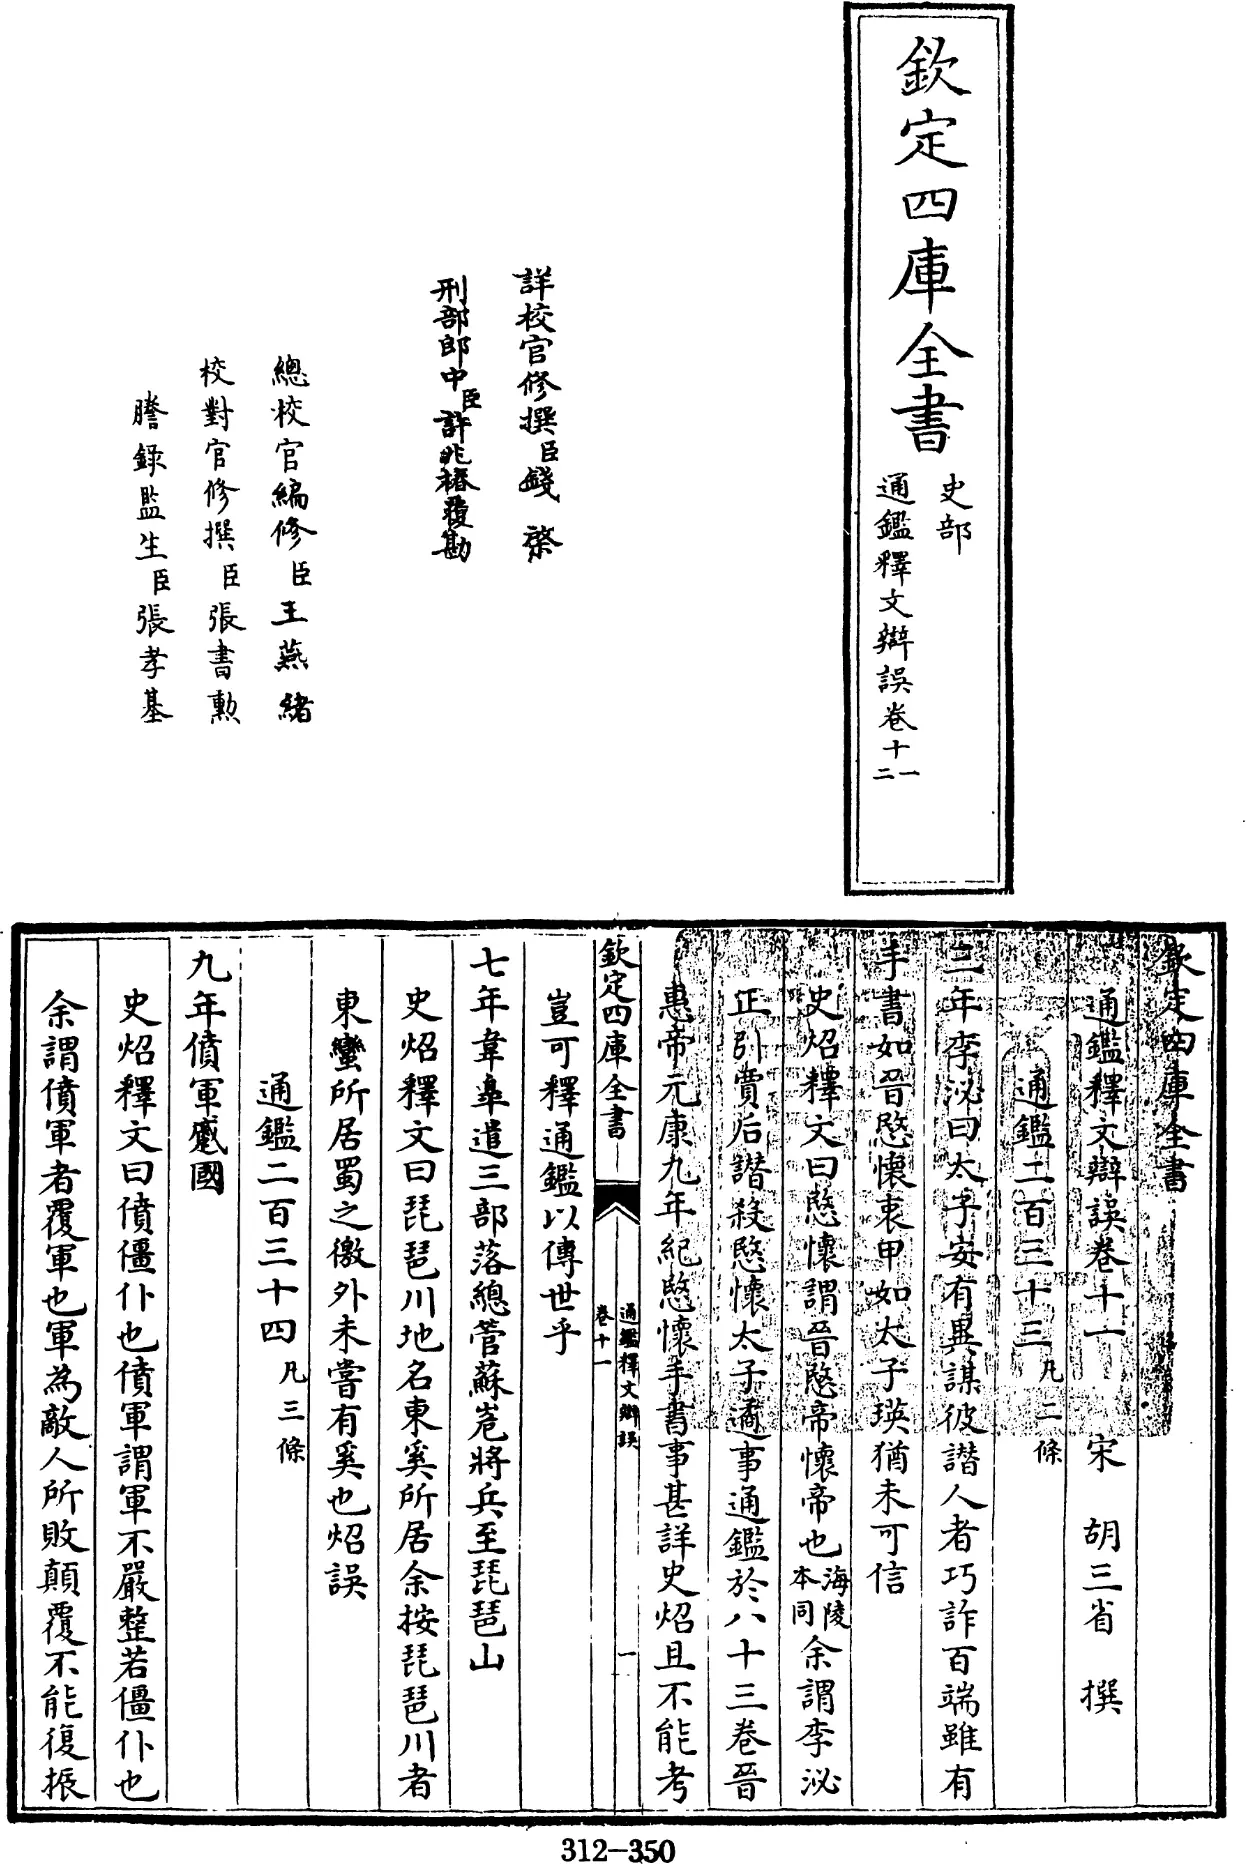 欽定四庫全書
史部
通鑑釋文辯誤卷十一
二
詳校官修撰臣錢棨
刑部郎中臣許兆椿覆勘
總校官編修臣王燕緒
校對官修撰臣張書勲
謄錄監生臣張孝基
欽定四庫全書
通鑑釋文辯誤卷十一 宋 胡三省 撰
通鑑二百三十三凡二條
三年李泌曰太子安有異謀彼譖人者巧詐百端雖有
手書如晉愍懷衷甲如太子瑛猶未可信
史炤釋文曰愍懷謂晉愍帝懷帝也海陵本同余謂李泌
正引賈后譖殺愍懷太子遹事通鑑於八十三卷晉
惠帝元康九年紀愍懷手書事甚詳史炤且不能考
欽定四庫全書
通鑑釋文辯誤
卷十一
一
豈可釋通鑑以傳世乎
七年韋臯遣三部落總管蘇嵬將兵至琵琶山
史炤釋文曰琵琶川地名東奚所居余按琵琶川者
東蠻所居蜀之徼外未嘗有奚也炤誤
通鑑二百三十四凡三條
九年僨軍蹙國
史炤釋文曰僨僵仆也僨軍謂軍不嚴整若僵仆也
余謂僨軍者覆軍也軍為敵人所敗顛覆不能復振
312-350